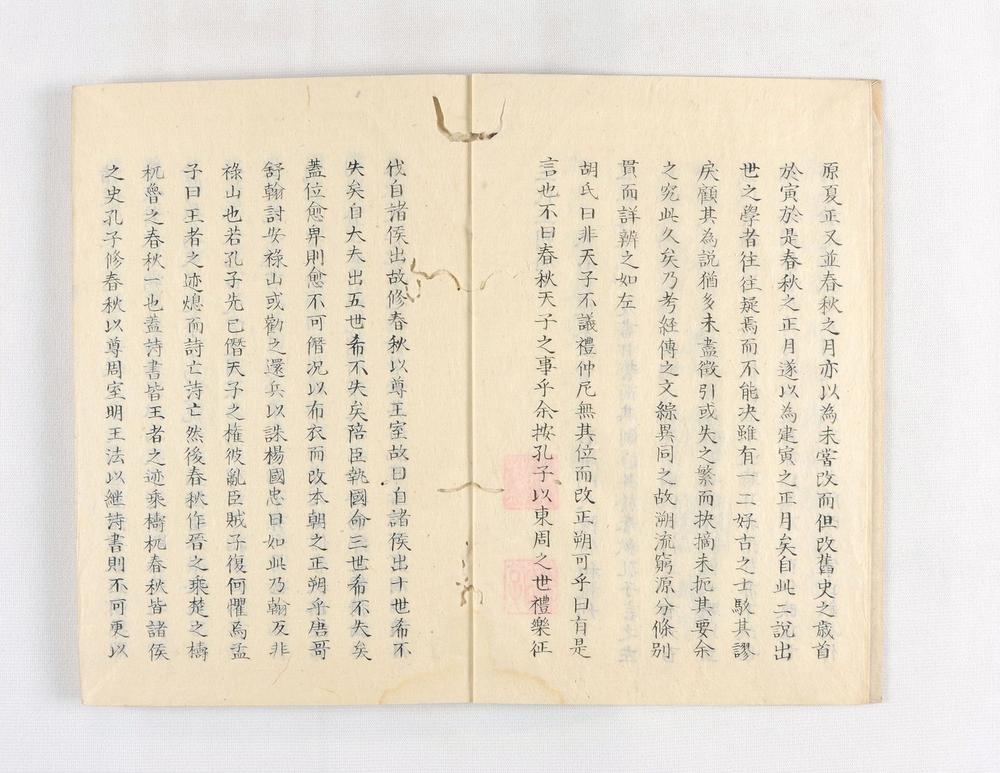 原夏正又並春秋之月亦以為未甞改而但改舊史之歳首
於寅於是春秋之正月遂以為建寅之正月矣自此二說出
世之學者往往疑焉而不能决雖有一二好古之士駁其謬
戾顧其為說猶多未盡徵引或失之繁而抉摘未扼其要余
之究此久矣乃考經傳之文綜異同之故溯流窮源分條别
貫而詳辨之如左
胡氏曰非天子不議禮仲尼無其位而改正朔可乎曰有是
言也不曰春秋天子之事乎余按孔子以東周之世禮樂征
伐自諸侯出故修春秋以尊王室故曰自諸侯出十世希不
失矣自大夫出五世希不失矣陪臣執國命三世希不失矣
蓋位愈卑則愈不可僭况以布衣而改本朝之正朔乎唐哥
舒翰討安祿山或勸之還兵以誅楊國忠曰如此乃翰反非
祿山也若孔子先已僭天子之權彼亂臣賊子復何懼焉孟
子曰王者之迹熄而詩亡詩亡然後春秋作晉之乘楚之檮
杌魯之春秋一也蓋詩書皆王者之迹乘檮杌春秋皆諸侯
之史孔子修春秋以尊周室明王法以継詩書則不可更以